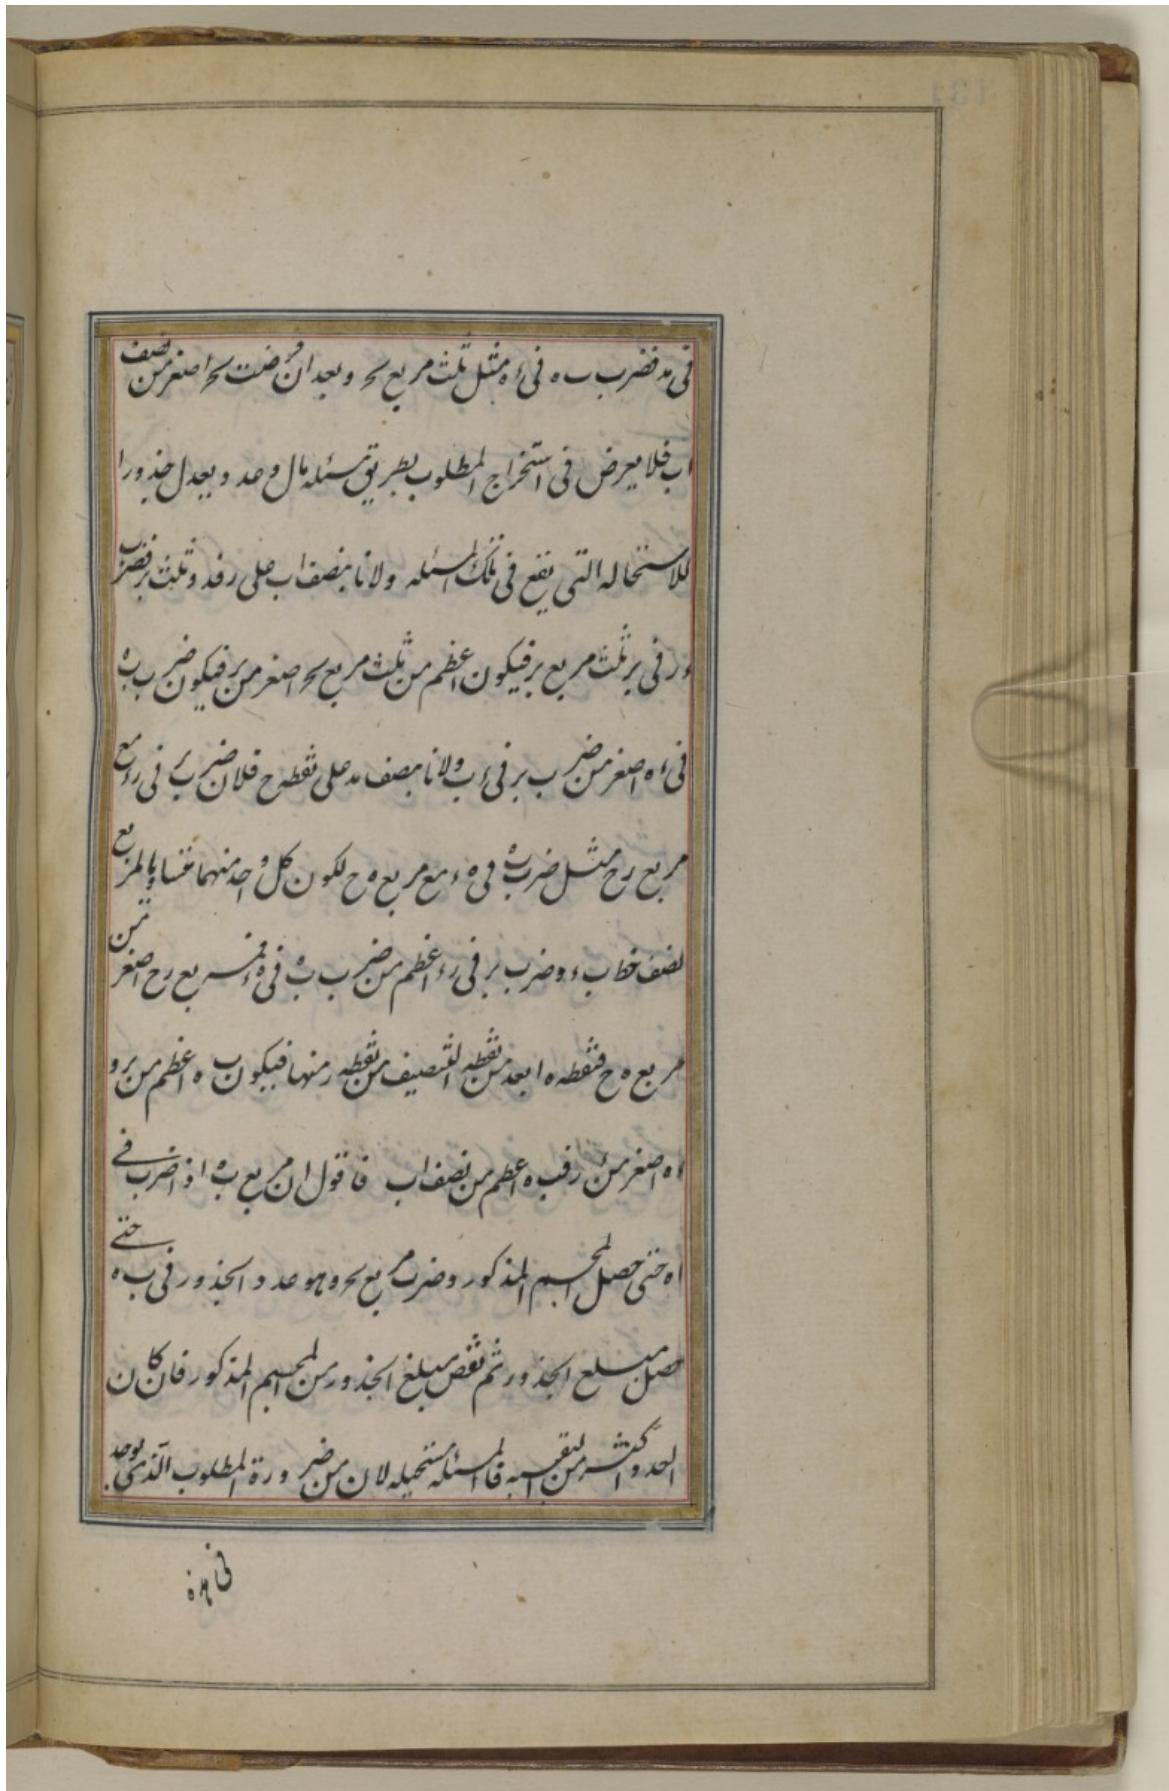 فى مد فضرب ب ه فى ء ه مثل ثلث مربع ىح و بعد ان فرضت ىح اصغر من نصف
اب فلا يعرض فى استخراج المطلوب بطريق مسئله مال وعدد و يعدل جذورا
للاستحاله التى يقع فى تلك المسئله و لانا بنصف اب على ر فد و ثلث بر فضرب
ء ر فى بر ثلث مربع بر فيكون اعظم من ثلث مربع ىح اصغر من بر فيكون ضرب ب ه
فى ء ه اصغر من ضرب بر فى ء ب و لانا بنصف مد على نقطه ح فلان ضرب بر فى رء مع
مربع رح مثل ضرب ب ه فى ه ء مع مربع ه ح لكون كل واحد منهما متساويا لمربع
نصف خط ب ء و ضرب بر فى رء اعظم من ضرب ب ه فى ه ء فمربع رح اصغر من
مربع ه ح فنقطه ه ابعد من نقطه التنصيف من نقطه ر منها فيكون ب ه اعظم من بر و
ء ه اصغر من ء ر فب ه اعظم من نصف اب فاقول ان مربع ب ه اذا ضرب فى
اه حتى حصل المجسم المذكور و ضرب مربع ىح و هو عدد الجذور فى ب ه حتى
حصل مبلغ الجذور ثم نقص مبلغ الجذور من المجسم المذكور فان كان
العدد اكثر من البقيه فالمسئله مستحيله لان من ضرورة المطلوب الذى يوجد
فى هذه